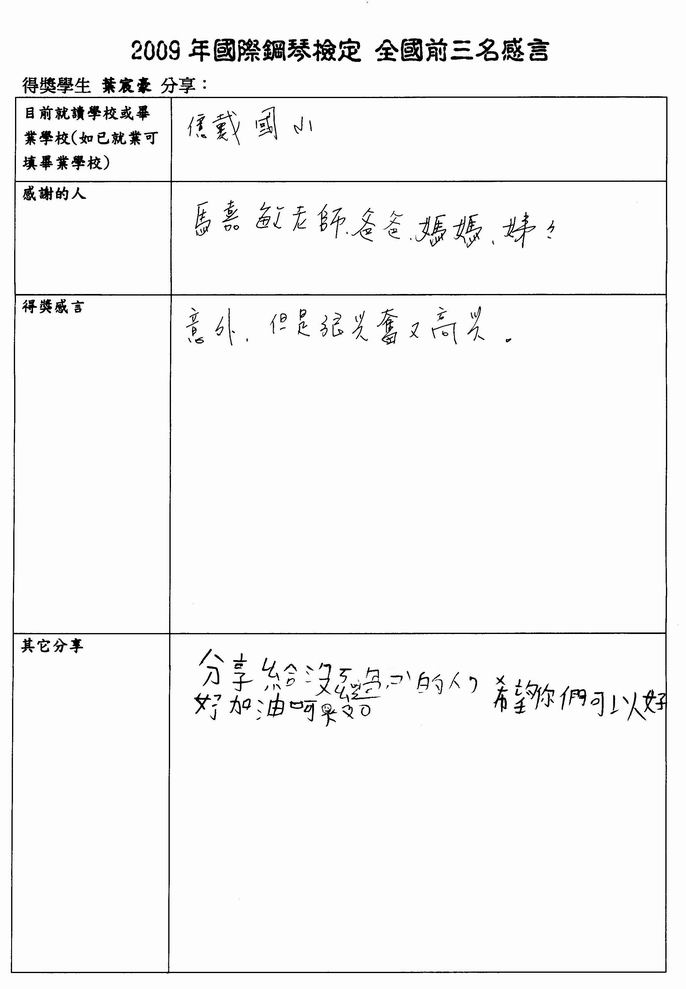 2009 年國際鋼琴檢定 全國前三名感言
得獎學生 葉宸豪 分享：
目前就讀學校或畢
業學校(如已就業可
填畢業學校)
信戴國小
感謝的人
馬嘉敏老師、爸爸、媽媽、娣々
得獎感言
意外，但是很興奮又高興。
其它分享
分享給沒 的人 希望你們可以好
好加油呵